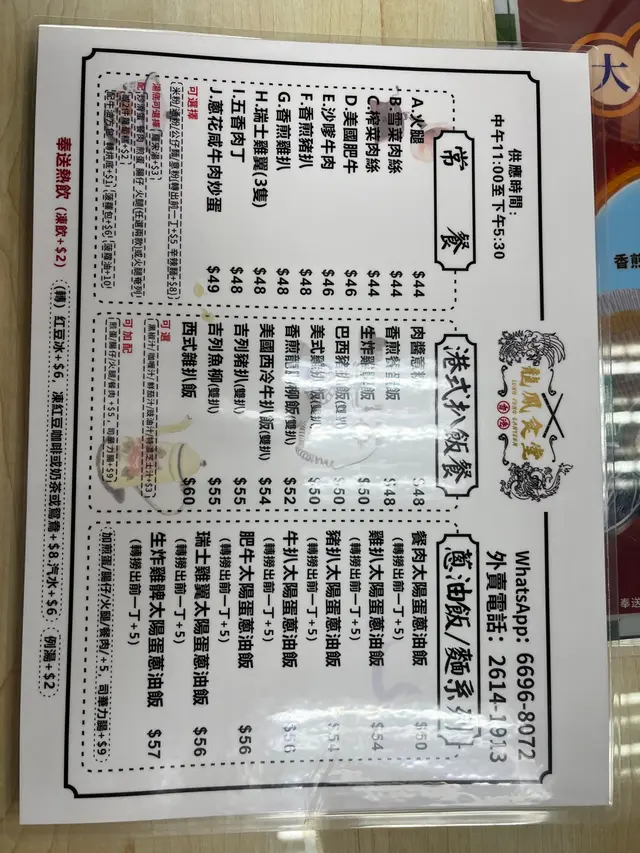 供應時間：
中午11:00至下午5:30
龍鳳食堂
LUNG FUNG CANTEEN
WhatsApp: 6696-8072
外賣電話: 2614-1913
常餐
A.火腿 $44
B.雪菜肉絲 $44
C.榨菜肉絲 $44
D.美國肥牛 $46
E.沙嗲牛肉 $46
F.香煎豬扒 $48
G.香煎雞扒 $48
H.瑞士雞翼(3隻) $48
I.五香肉丁 $48
J.蔥花咸牛肉炒蛋 $49
可選擇
港式扒飯餐
肉醬意粉 $48
$48
生炸 飯 $50
巴西豬扒飯(雙扒) $50
美式 $50
香煎 柳飯(雙扒) $52
美國西冷牛扒飯(雙扒) $54
吉列豬扒(雙扒) $55
吉列魚柳(雙扒) $55
西式雜扒飯 $60
可選
可加配
蔥油飯/麵系列
餐肉太陽蛋蔥油飯 $50
(轉撈出前一丁+5)
雞扒太陽蛋蔥油飯 $54
(轉撈出前一丁+5)
豬扒太陽蛋蔥油飯 $54
(轉撈出前一丁+5)
牛扒太陽蛋蔥油飯 $56
(轉撈出前一丁+5)
肥牛太陽蛋蔥油飯 $56
(轉撈出前一丁+5)
瑞士雞翼太陽蛋蔥油飯 $56
(轉撈出前一丁+5)
生炸雞髀太陽蛋蔥油飯 $57
(轉撈出前一丁+5)
加煎蛋/腸仔/火腿/餐肉/+5，司華力腸+$9
奉送熱飲 (凍飲+$2) (轉) 紅豆冰+$6, 凍紅豆咖啡或奶茶或鴛鴦+$8,汽水+$6 例湯+$2
大
香煎
奉送